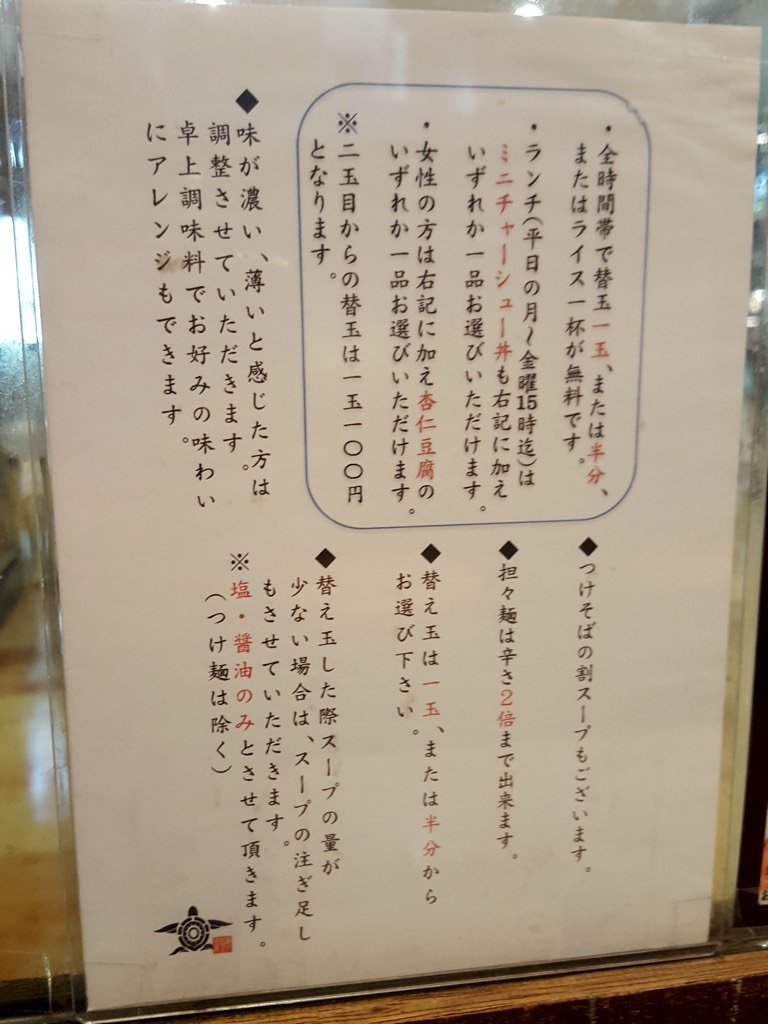 ・全時間帯で替玉一玉、または半分、
またはライス一杯が無料です。
・ランチ(平日の月~金曜15時迄)は
ミニチャーシュー丼も右記に加え
いずれか一品お選びいただけます。
・女性の方は右記に加え杏仁豆腐の
いずれか一品お選びいただけます。
※二玉目からの替玉は一玉一〇〇円
となります。
◆味が濃い、薄いと感じた方は
調整させていただきます。
卓上調味料でお好みの味わい
にアレンジもできます。
◆つけそばの割スープもございます。
◆担々麺は辛さ2倍まで出来ます。
◆替え玉は一玉、または半分から
お選び下さい。
◆替え玉した際スープの量が
少ない場合は、スープの注ぎ足し
もさせていただきます。
※塩・醤油のみとさせて頂きます。
(つけ麺は除く)